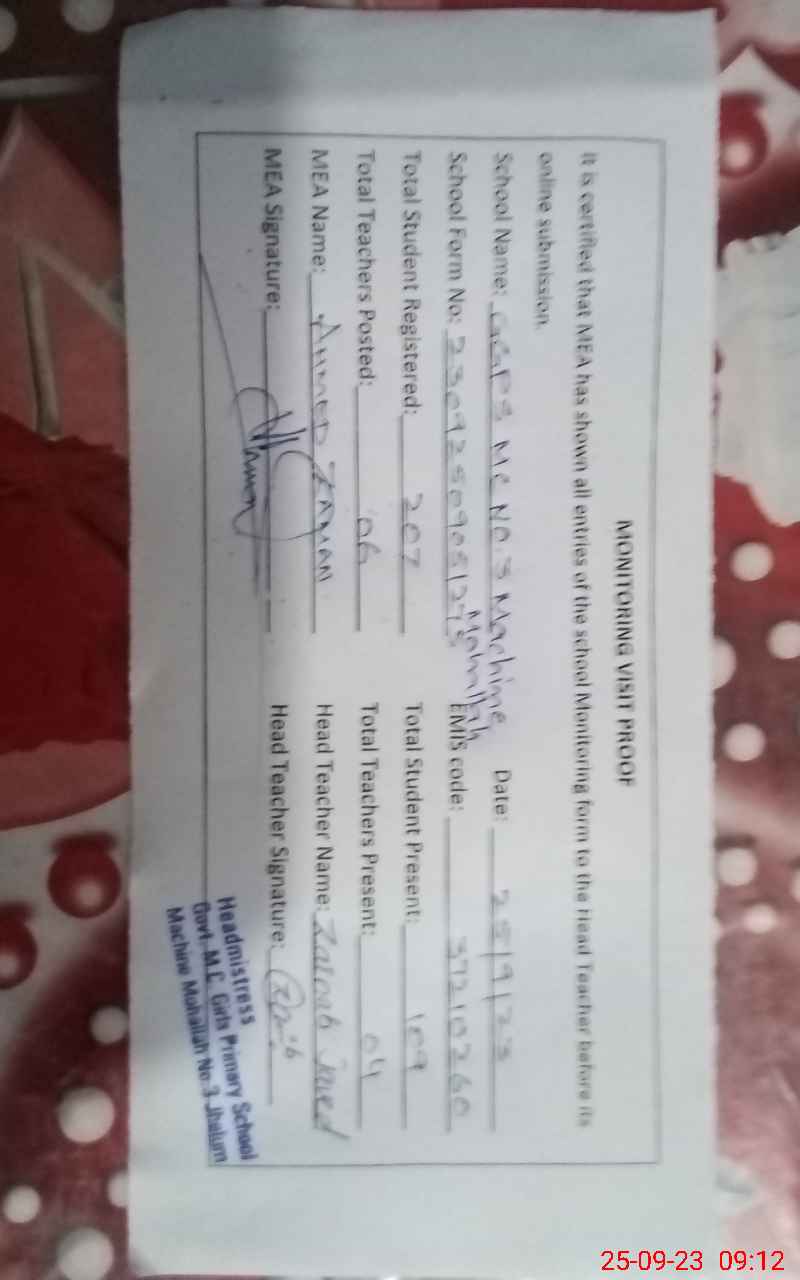 MONITORING VISIT PROOF
It is certified that MEA has shown all entries of the school Monitoring form to the Head Teacher before its
online submission.
School Name: GGPS MC NO.3 Machine Mohallah Date: 25/9/23
School Form No: 23092509051275 EMIS code: 37210260
Total Student Registered: 207 Total Student Present: 109
Total Teachers Posted: 06 Total Teachers Present: 04
MEA Name: AHMED ZAMAN Head Teacher Name: Zainab Javed
MEA Signature: Head Teacher Signature:
Headmistress
Govt. M.C. Girls Primary School
Machine Mohallah No.3 Jhelum
25-09-23 09:12